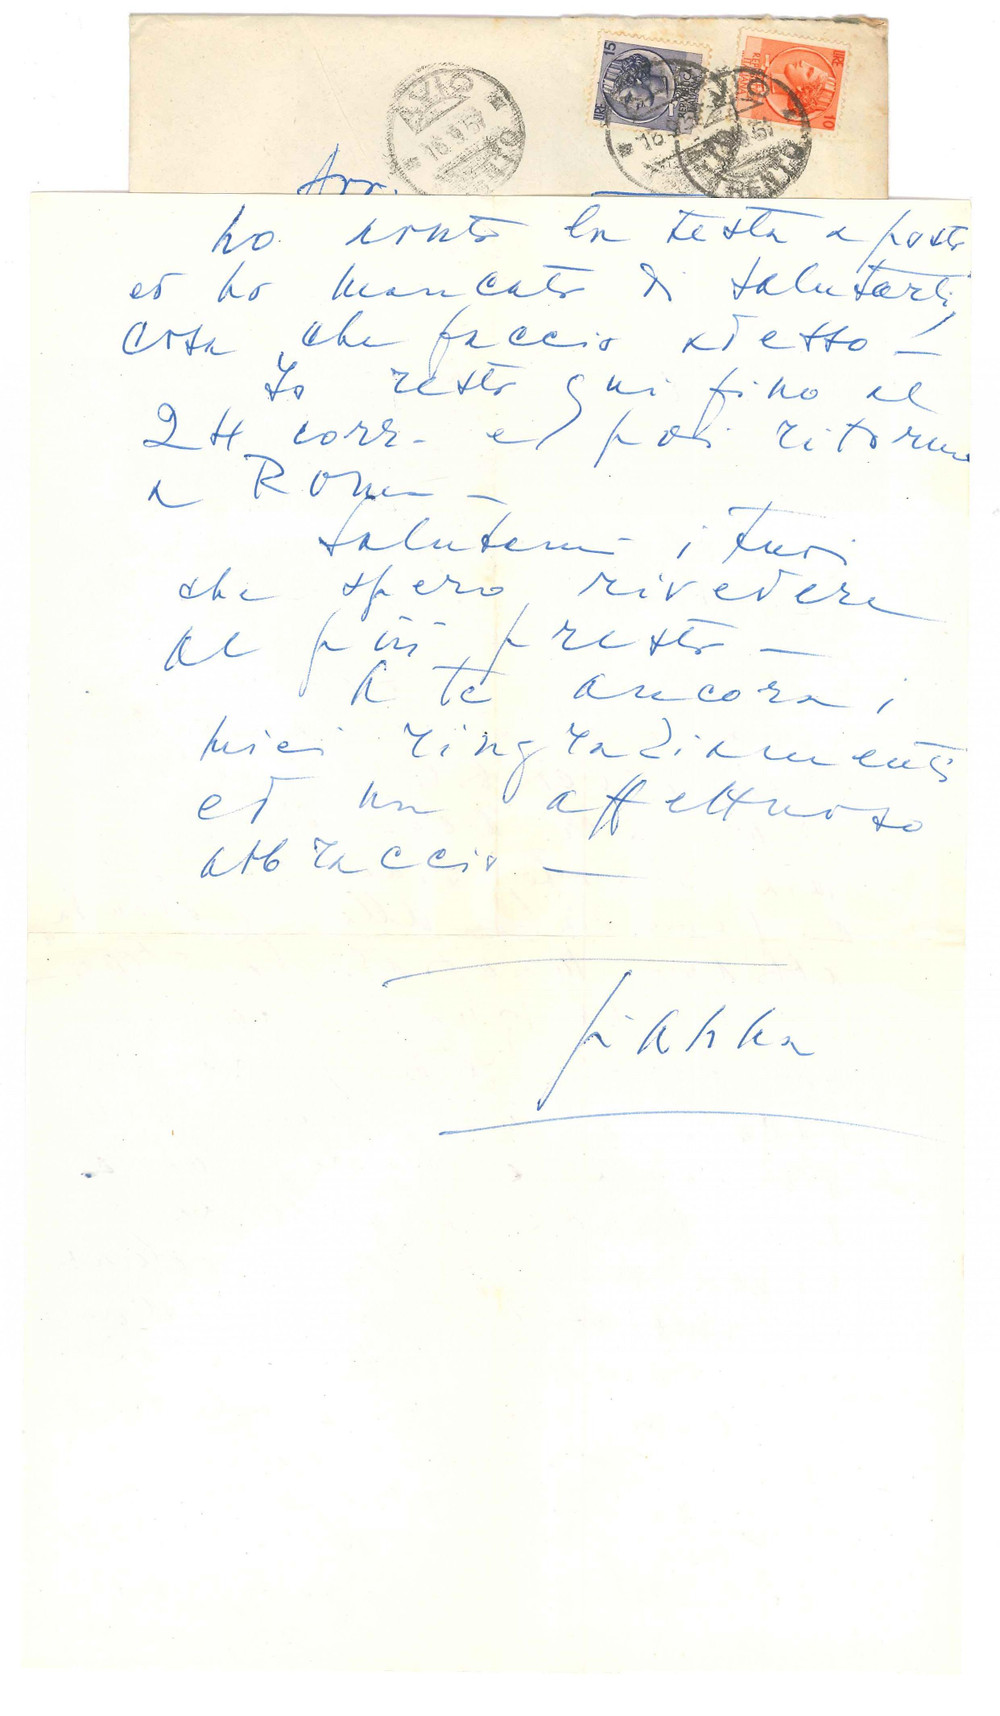 AVIO
16.V.57
TRENTO
LIRE 15
REPUBBLICA ITALIANA
LIRE 10
Avv.
ho la testa a posto
ed ho mancato di salutarti,
cosa che faccio adesso —
Io resto qui fino al
24 corr. e poi ritorno
a Roma —
Salutami i tuoi
che spero rivedere
al più presto —
A te ancora i
miei ringraziamenti
ed un affettuoso
abbraccio —